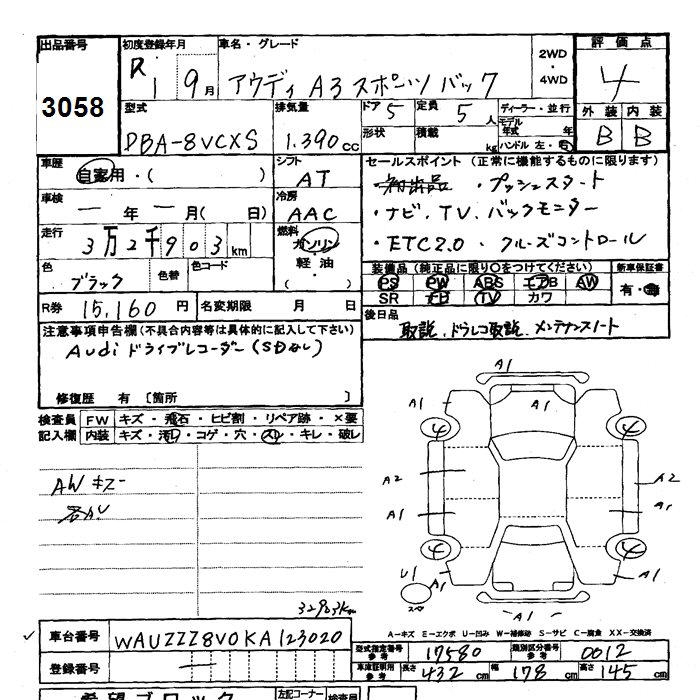 出品番号 初度登録年月 車名・グレード 2WD・4WD 評価点
3058 R1 9月 アウディ A3 スポーツバック 4
型式 排気量 ドア 5 定員 5人 ディーラー・並行 外装 内装
DBA-8VCXS 1.390cc 形状 積載 kg モデル年式 年 ハンドル 左・右 B B
車歴 自家用・( ) シフト AT セールスポイント (正常に機能するものに限ります)
・プッシュスタート
車検 ー年ー月(日) 冷房 AAC ・ナビ.TV.バックモニター
走行 3万2千903km 燃料 ガソリン・軽油・( ) ・ETC2.0 ・クルーズコントロール
色 ブラック 色替 色コード 装備品 (純正品に限り○をつけてください) 新車保証書
PS PW ABS エアB AW 有・無
R券 15,160円 名変期限 月 日 SR TV カワ
後日品 取説.ドラレコ取説.メンテナンスノート
注意事項申告欄(不具合内容等は具体的に記入して下さい)
Audi ドライブレコーダー(SDなし)
修復歴 有 〔箇所 〕
検査員 FW キズ・飛石・ヒビ割・リペア跡・×要
記入欄 内装 キズ・汚れ・コゲ・穴・スレ・キレ・破レ
AW キズー
A1
A1 A1
4 4
A2 A2
A1 A1
4 4
U1 A1 A1
A1
32903km
A-キズ E-エクボ U-凹み W-補修跡 S-サビ C-腐食 XX-交換済
車台番号 WAUZZZ8V0KA123020 型式指定番号 参考 17580 類別区分番号 参考 0012
登録番号 ー 車庫証明用 参考 長さ 432cm 幅 178cm 高さ 145cm
希望ブロック 左記コーナー 検査員